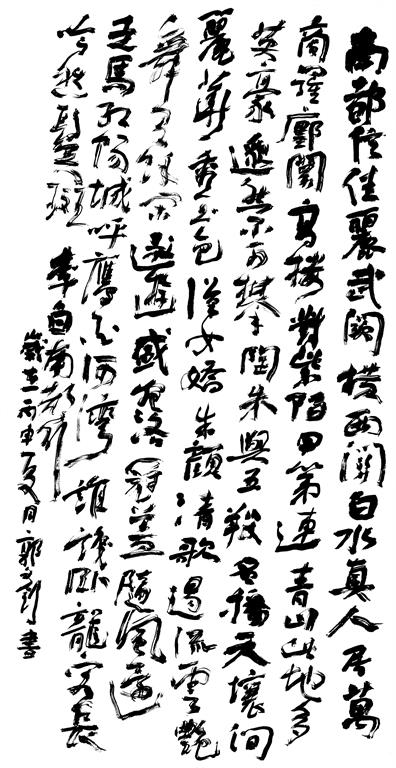 南都信佳麗武闕橫西關白水真人居萬
商羅鄽闤高樓對紫陌甲第連青山此地多
英豪邈然不可攀陶朱與五羖名播天壤間
麗華秀玉色漢女嬌朱顏清歌遏流雲艷
舞有餘閒遨遊盛宛洛冠蓋隨風還
走馬紅陽城呼鷹白河灣誰識臥龍客長
吟愁鬢斑 李白南都行
歲在丙申夏月郭書